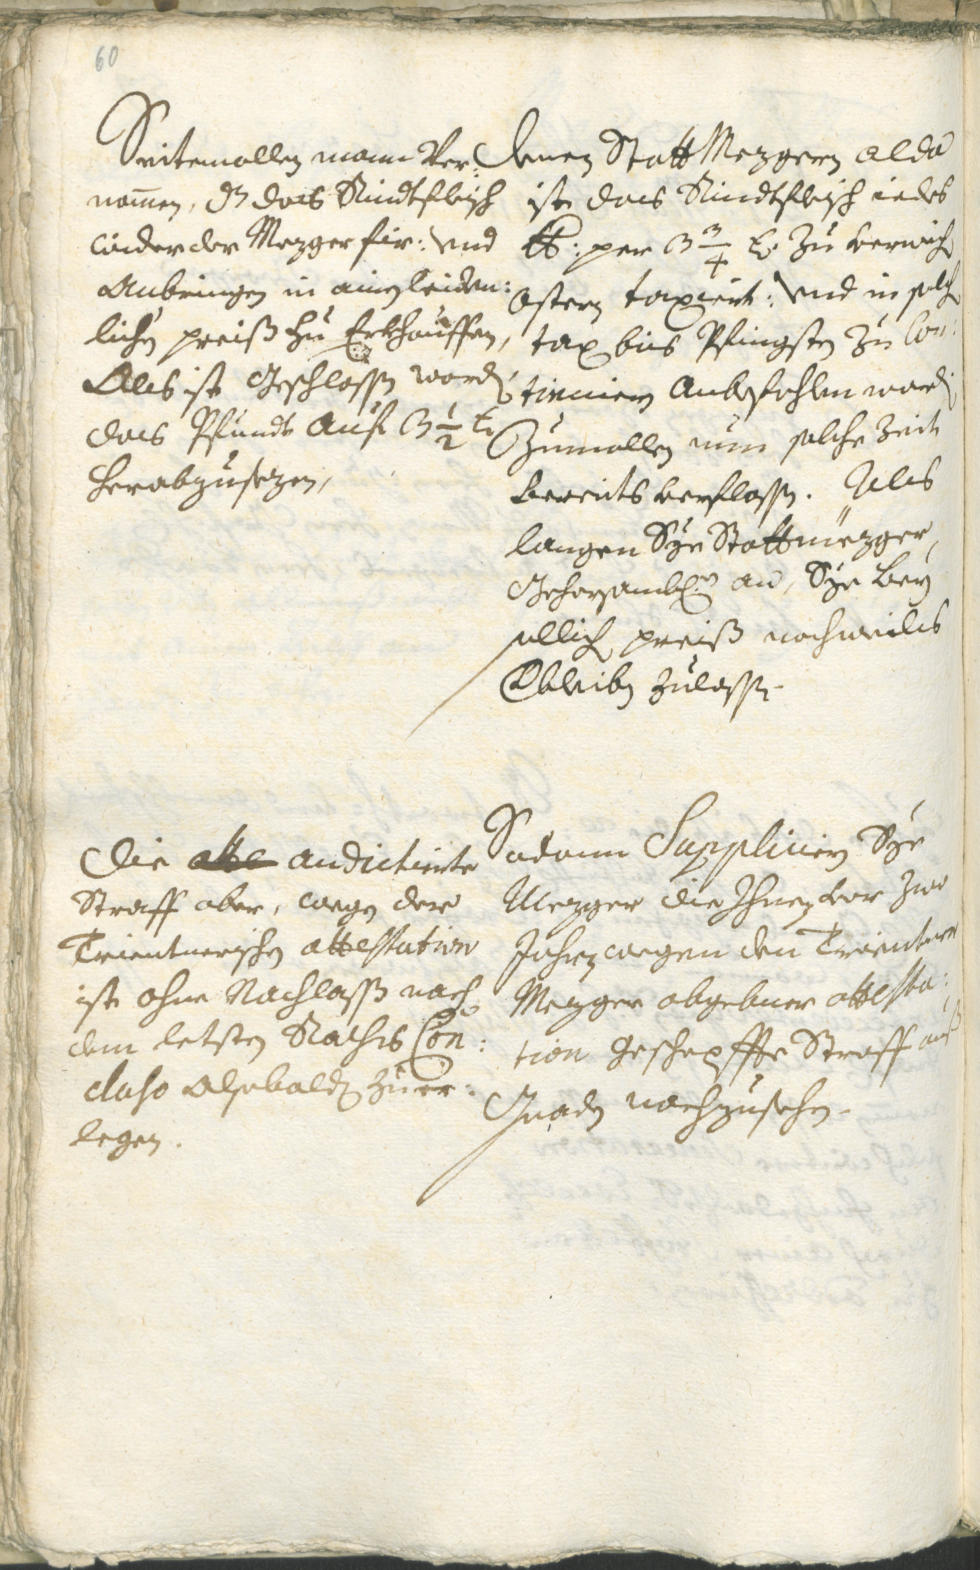 60
Seitemallen mann Ver:
nom̄en, dz das Rindtfleisch
wider der Mezger fir: Vnd
Anbringen in ainem leiden:
lichen preiß zu Erkhauffen,
Als ist Geschlossen worden,
das Pfundt Auf 3 1/2 kr.
herabzusezen,
Denen Statt Mezgern alda
ist das Rindtfleisch iedes
℔: per 3 3/4 kr. zu verwich
Ostern taxiert: Vnd in solch
tax bis Pfingsten zu Con:
tinuiern Anbefohlen worden
Zumallen nun solche Zeit
bereits verflossen. Als
langen Sye Stattmezger,
Gehorsambl. an, Sye bey
sollich preiß nochweils
Verbleiben zulassen.
Die andictierte
Straff aber, wegen dere
Trientnerischen attestation
ist ohne Nachlass nach
dem letsten Raths Con:
cluso Alsobalden zu er:
legen.
Sodann Supplicieren Sye
Mezger die Ihnen vor zwo
Jahren wegen den Trientner
Mezger abgebner attesta:
tion geschepffte Straff auß
Gnaden nachzusehen.